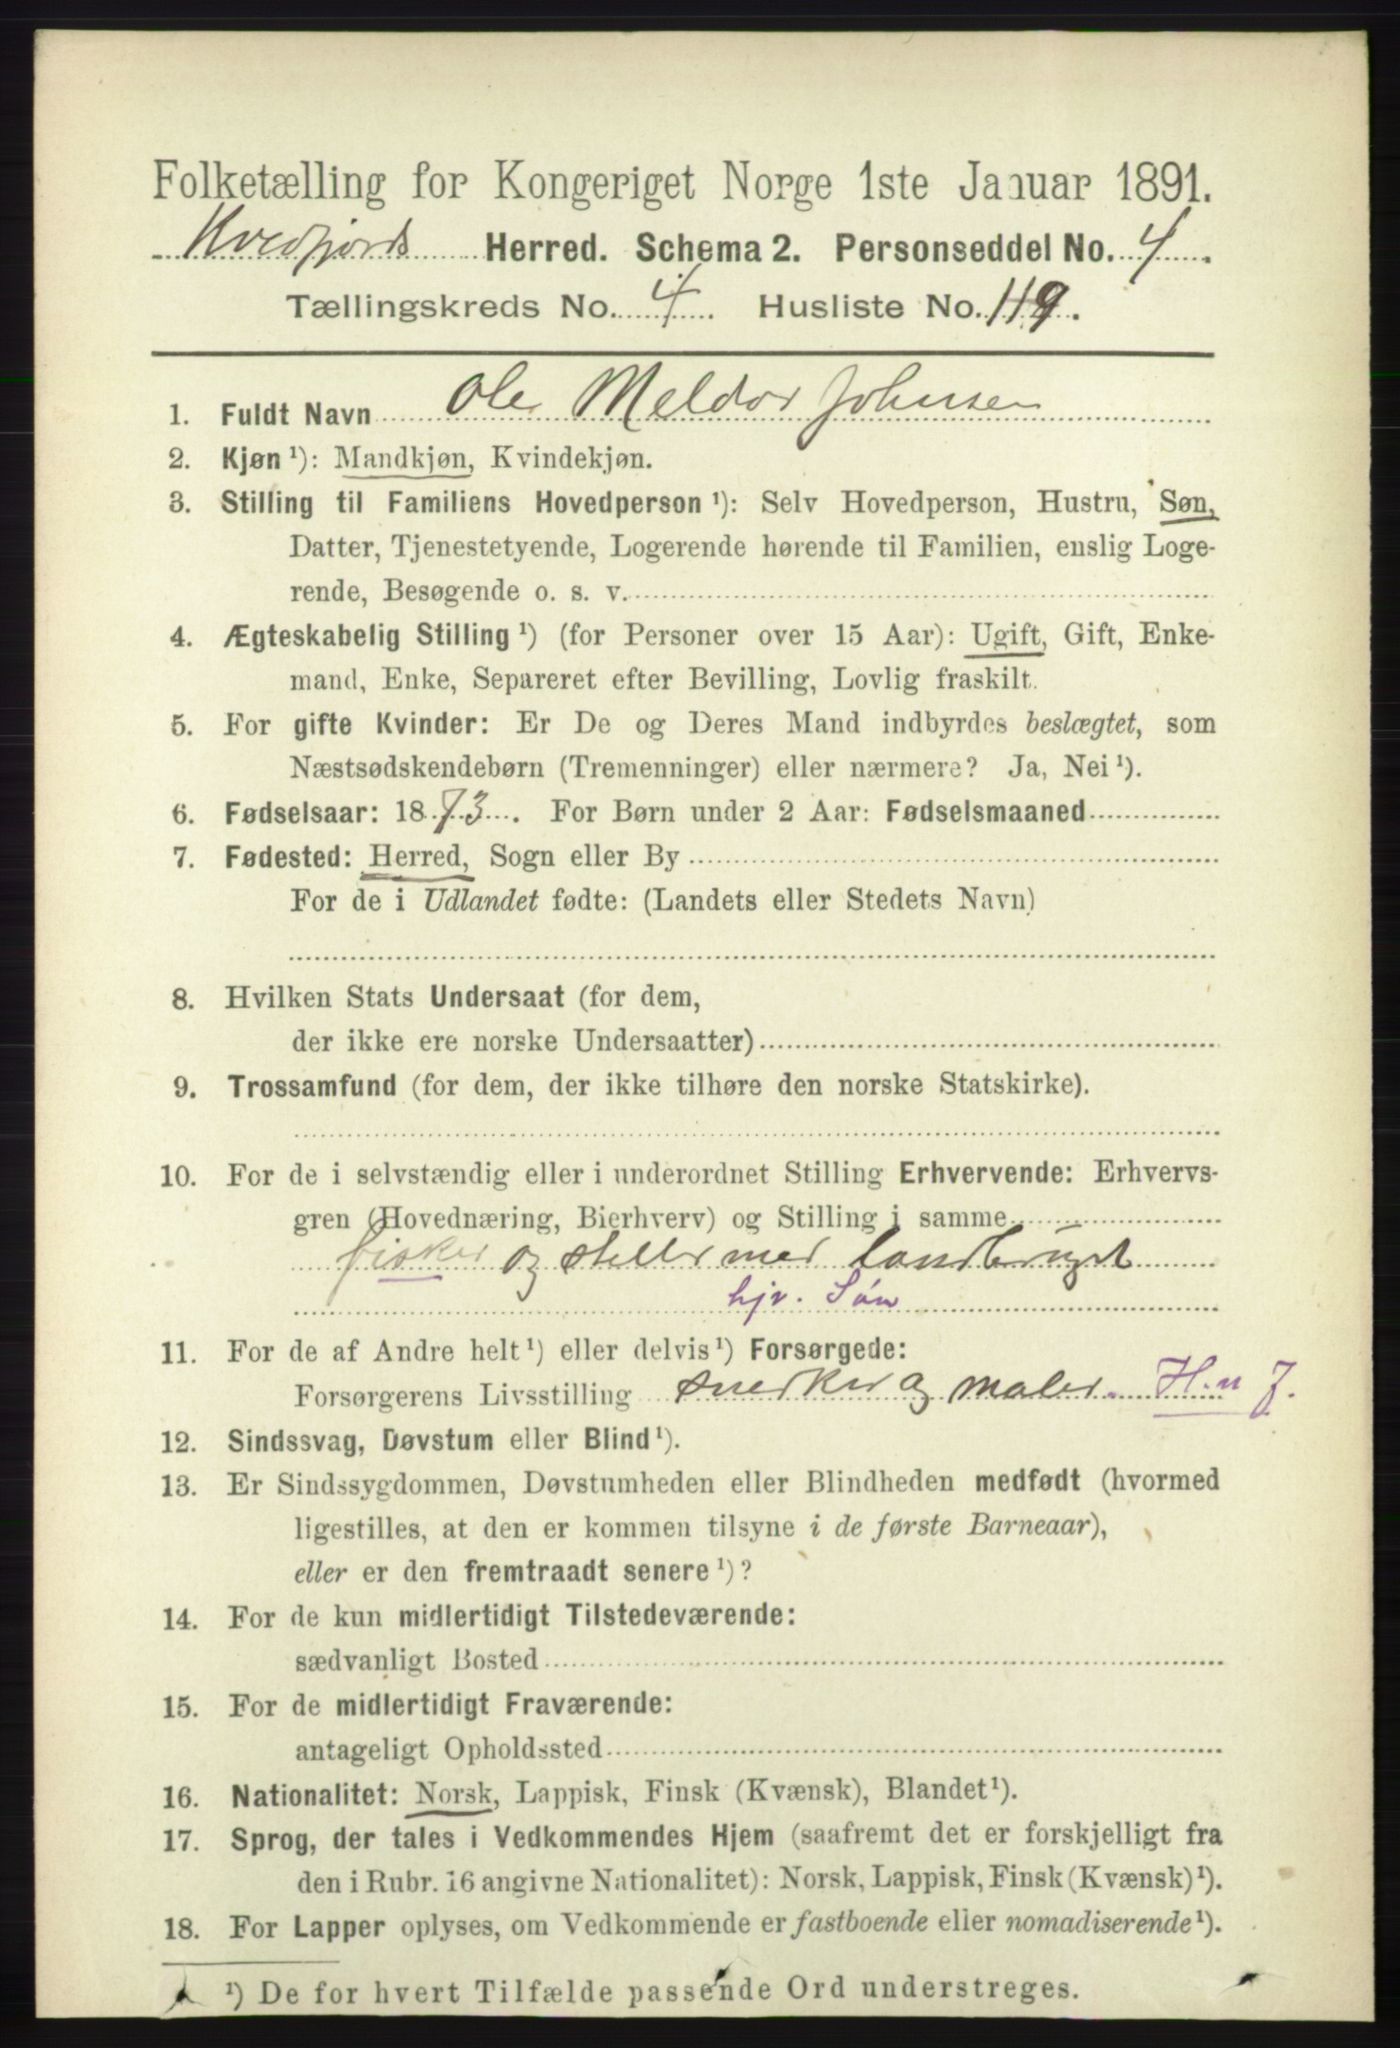 Folketælling for Kongeriget Norge 1ste Januar 1891.
Kvedfjords Herred. Schema 2. Personseddel No. 4.
Tællingskreds No. 4. Husliste No. 119.
1. Fuldt Navn Ole Meldor Johnsen
2. Kjøn ¹): Mandkjøn, Kvindekjøn.
3. Stilling til Familiens Hovedperson ¹): Selv Hovedperson, Hustru, Søn,
Datter, Tjenestetyende, Logerende hørende til Familien, enslig Loge-
rende, Besøgende o. s. v.
4. Ægteskabelig Stilling ¹) (for Personer over 15 Aar): Ugift, Gift, Enke-
mand, Enke, Separeret efter Bevilling, Lovlig fraskilt.
5. For gifte Kvinder: Er De og Deres Mand indbyrdes beslægtet, som
Næstsødskendebørn (Tremenninger) eller nærmere? Ja, Nei ¹).
6. Fødselsaar: 1873. For Børn under 2 Aar: Fødselsmaaned
7. Fødested: Herred, Sogn eller By
For de i Udlandet fødte: (Landets eller Stedets Navn)
8. Hvilken Stats Undersaat (for dem,
der ikke ere norske Undersaatter)
9. Trossamfund (for dem, der ikke tilhøre den norske Statskirke).
10. For de i selvstændig eller i underordnet Stilling Erhvervende: Erhvervs-
gren (Hovednæring, Bierhverv) og Stilling i samme
fisker og steller med landbruget
hjv. Søn
11. For de af Andre helt ¹) eller delvis ¹) Forsørgede:
Forsørgerens Livsstilling snerker og maler H.n J.
12. Sindssvag, Døvstum eller Blind ¹).
13. Er Sindssygdommen, Døvstumheden eller Blindheden medfødt (hvormed
ligestilles, at den er kommen tilsyne i de første Barneaar),
eller er den fremtraadt senere ¹)?
14. For de kun midlertidigt Tilstedeværende:
sædvanligt Bosted
15. For de midlertidigt Fraværende:
antageligt Opholdssted
16. Nationalitet: Norsk, Lappisk, Finsk (Kvænsk), Blandet ¹).
17. Sprog, der tales i Vedkommendes Hjem (saafremt det er forskjelligt fra
den i Rubr. 16 angivne Nationalitet): Norsk, Lappisk, Finsk (Kvænsk) ¹).
18. For Lapper oplyses, om Vedkommende er fastboende eller nomadiserende ¹).
¹) De for hvert Tilfælde passende Ord understreges.